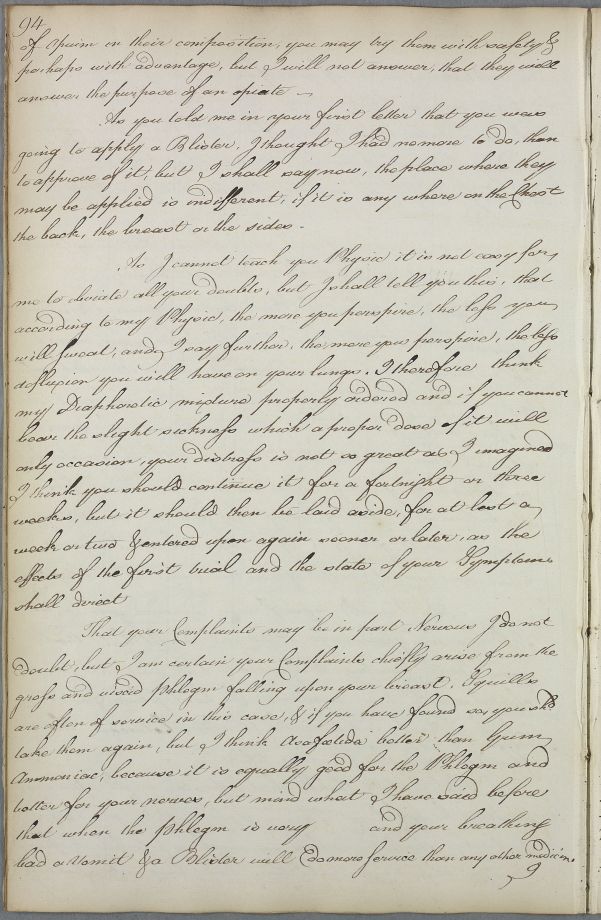 94
of Opium in their composition, you may try them with safety &
perhaps with advantage, but I will not answer, that they will
answer the purpose of an opiate —
As you told me in your first letter that you were
going to apply a Blister, I thought I had no more to do, than
to approve of it, but I shall say now, the place where they
may be applied is indifferent, if it is any where on the Chest
the back, the breast or the sides -
As I cannot teach you Physic it is not easy for
me to obviate all your doubts, but I shall tell you this, that
according to my Physic, the more you perspire, the less you
will sweat, and I say further, the more you perspire, the less
defluxion you will have on your lungs, I therefore think
my Diaphoretic mixture properly ordered and if you cannot
bear the slight sickness which a proper dose of it will
only occasion, your distress is not so great as I imagined
I think you should continue it for a fortnight or three
weeks, but it should then be laid aside, for at least a
week or two & entered upon again sooner or later, as the
effects of the first trial and the state of your Symptoms
shall direct
That your Complaints may be in part Nervous I do not
doubt, but I am certain your Complaints chiefly arise from the
gross and viscid Phlegm falling upon your breast. Squills
are often of service in this case, & if you have found so, you shd
take them again, but I think Asafœtida better than Gum
Ammoniac, because it is equally good for the Phlegm and
better for your nerves, but mind what I have said before
that when the Phlegm is very and your breathing
bad a Vomit & a Blister will do more service than any other medicine
I